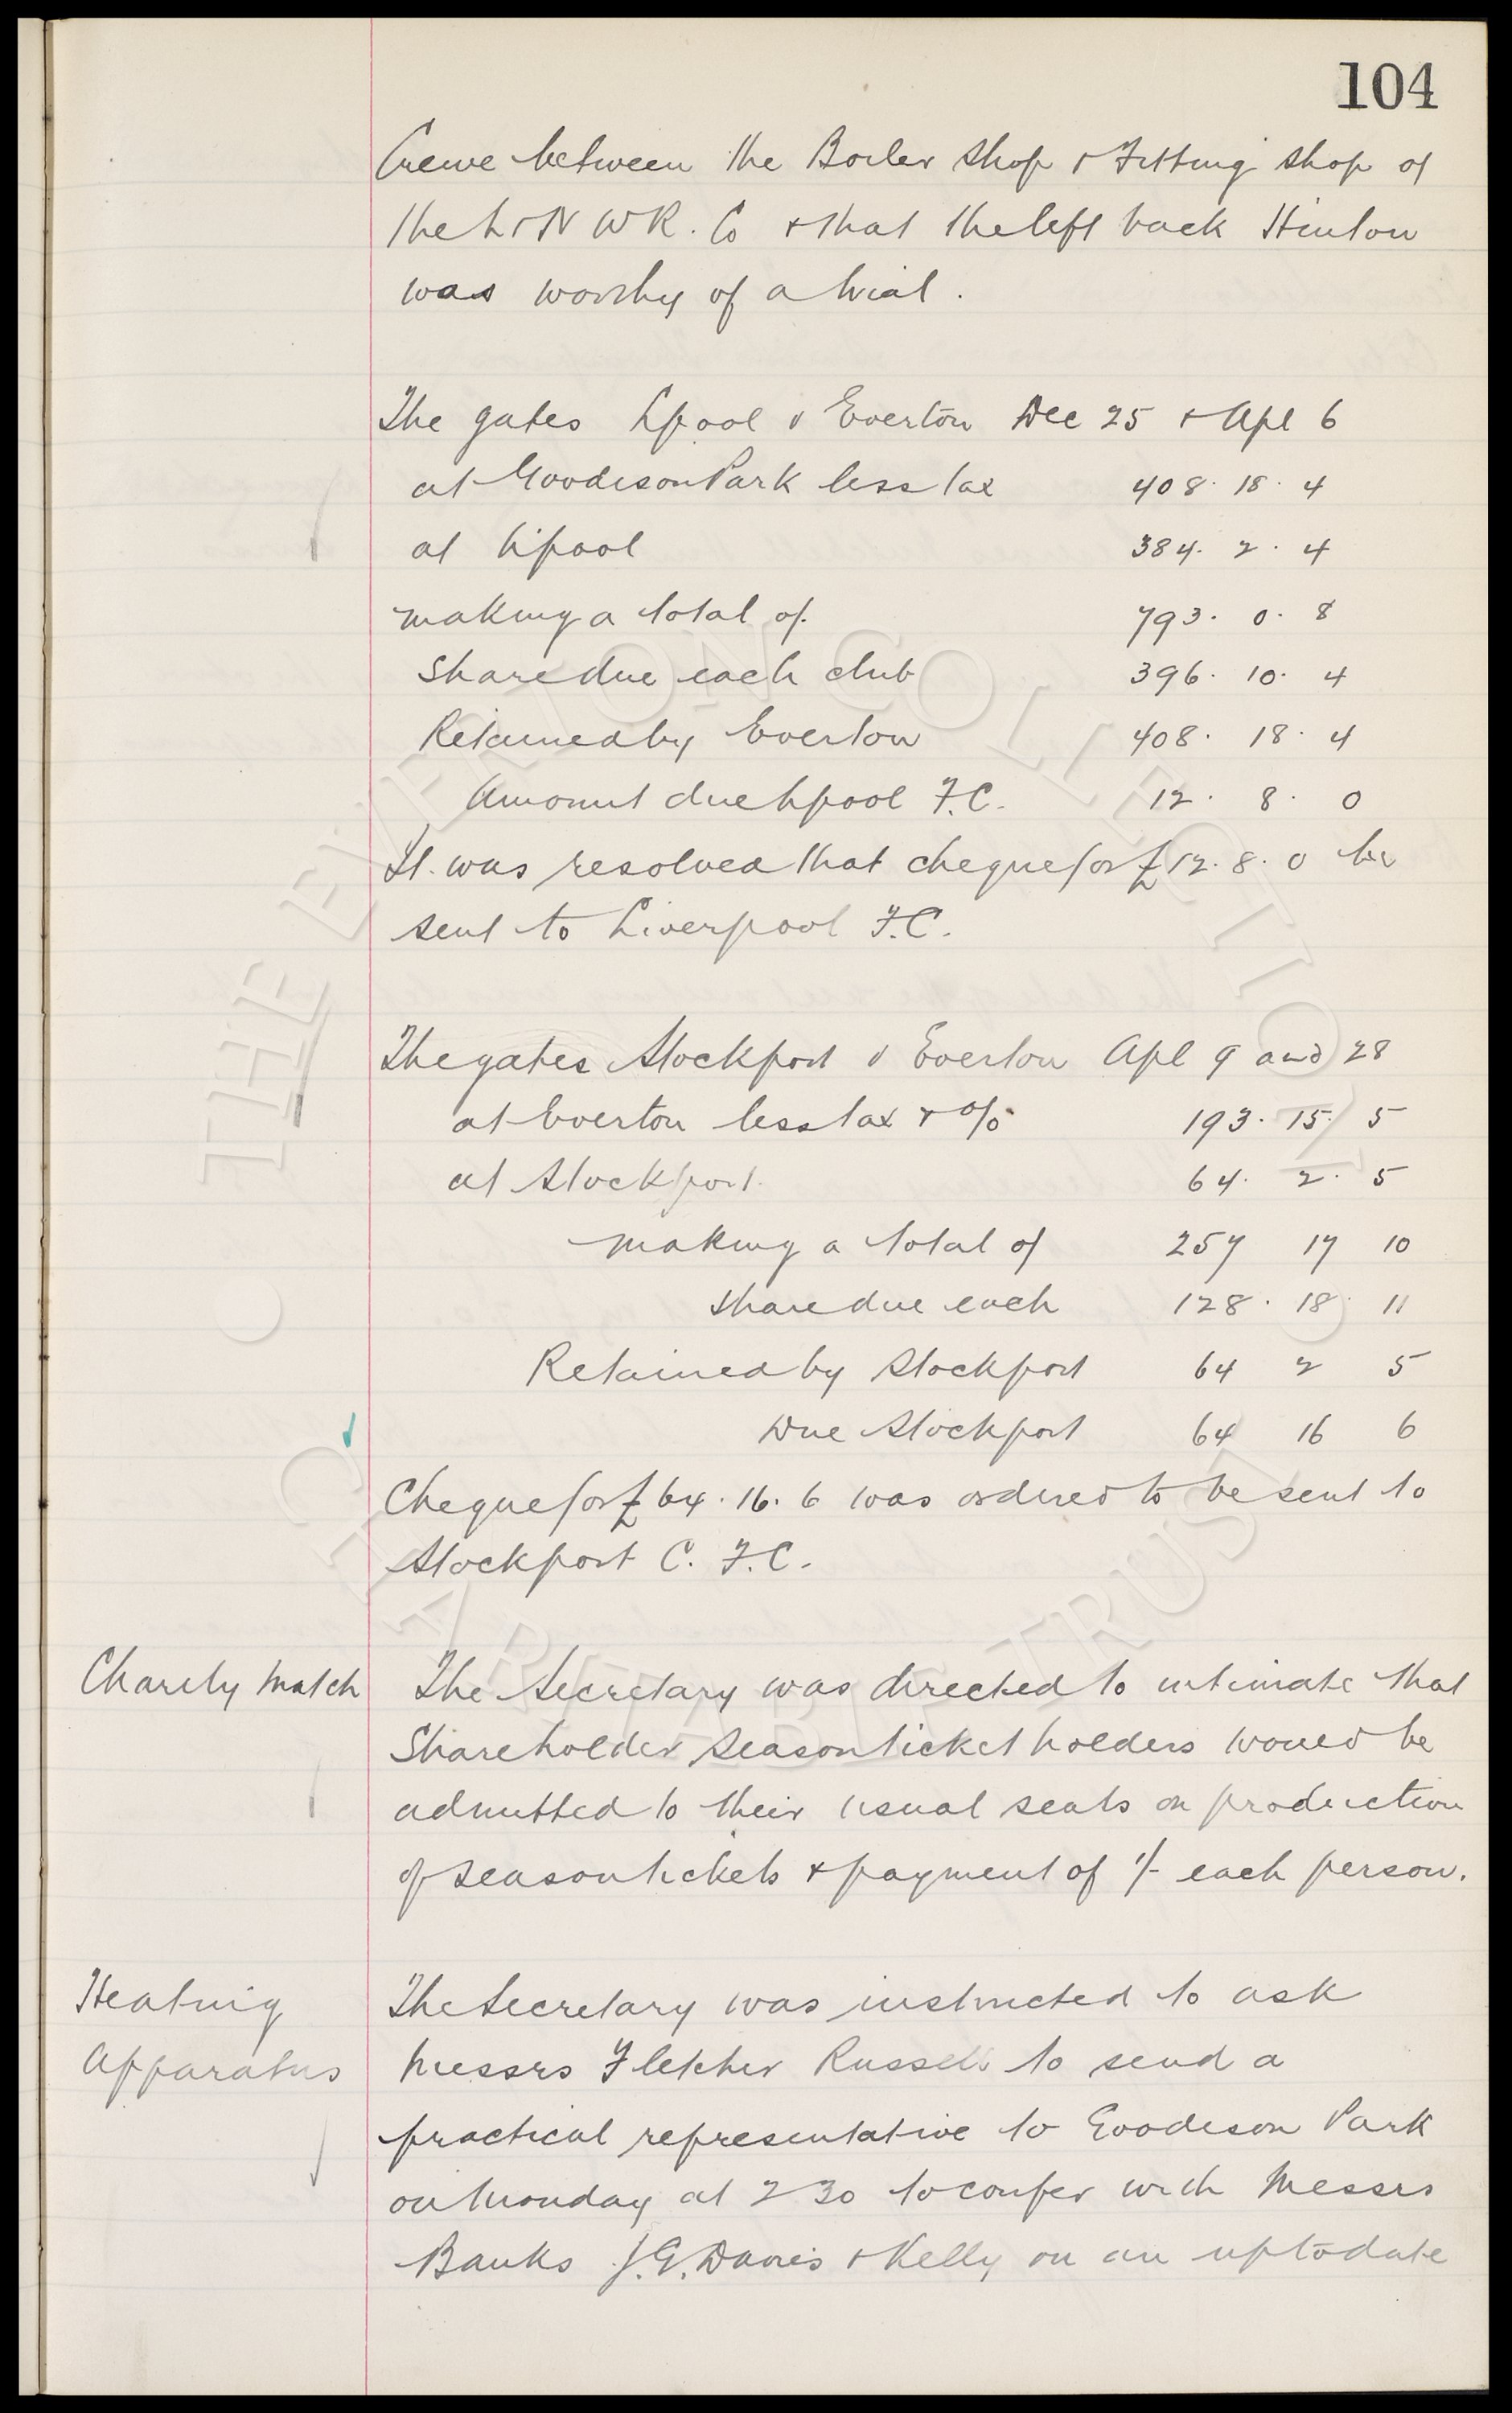 104
Crewe between the Boiler Shop & Fitting Shop of
the L & N W R. Co & that the left back Hinton
was worthy of a trial.
The gates L'pool v Everton Dec 25 & Apl 6
at Goodison Park less tax 408. 18. 4
at L'pool 384. 2. 4
making a total of 793. 0. 8
Share due each club 396. 10. 4
Retained by Everton 408. 18. 4
Amount due L'pool F.C. 12. 8. 0
It was resolved that cheque for £12. 8. 0 be
sent to Liverpool F.C.
The gates Stockport v Everton Apl 9 and 28
at Everton less tax & % 193. 15. 5
at Stockport 64. 2. 5
making a total of 257 17 10
share due each 128. 18. 11
Retained by Stockport 64 2 5
Due Stockport 64 16 6
Cheque for £64. 16. 6 was ordered to be sent to
Stockport C. F.C.
Charity Match The Secretary was directed to intimate that
Shareholder Season ticket holders would be
admitted to their usual seats on production
of season tickets & payment of 1/- each person.
Heating The Secretary was instructed to ask
Apparatus Messrs Fletcher Russell to send a
practical representative to Goodison Park
on Monday at 2 30 to confer with Messrs
Banks J.G. Davies & Kelly on an up to date
THE EVERTON COLLECTION
CHARITABLE TRUST